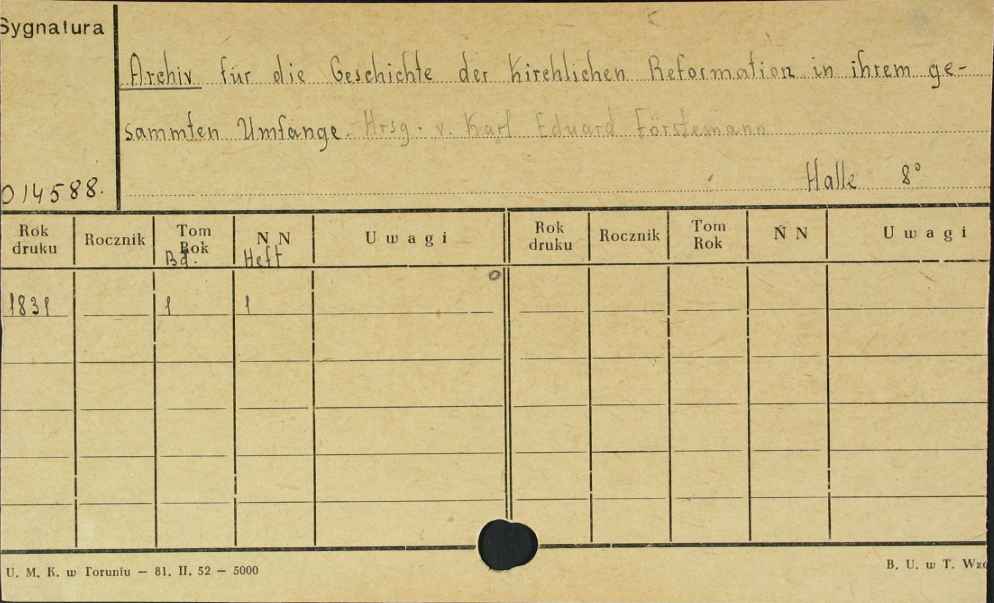 Sygnatura
Archiv für die Geschichte der kirchlichen Reformation in ihrem ge-
sammten Umfange. Hrsg. v. Karl Eduard Förstemann
014588.
Halle 8°
Rok druku Rocznik Tom Rok N N U w a g i Rok druku Rocznik Tom Rok N N U w a g i
Bd. Heft
1831 1 1
U. M. K. w Toruniu – 81. II. 52 – 5000
B. U. w T.